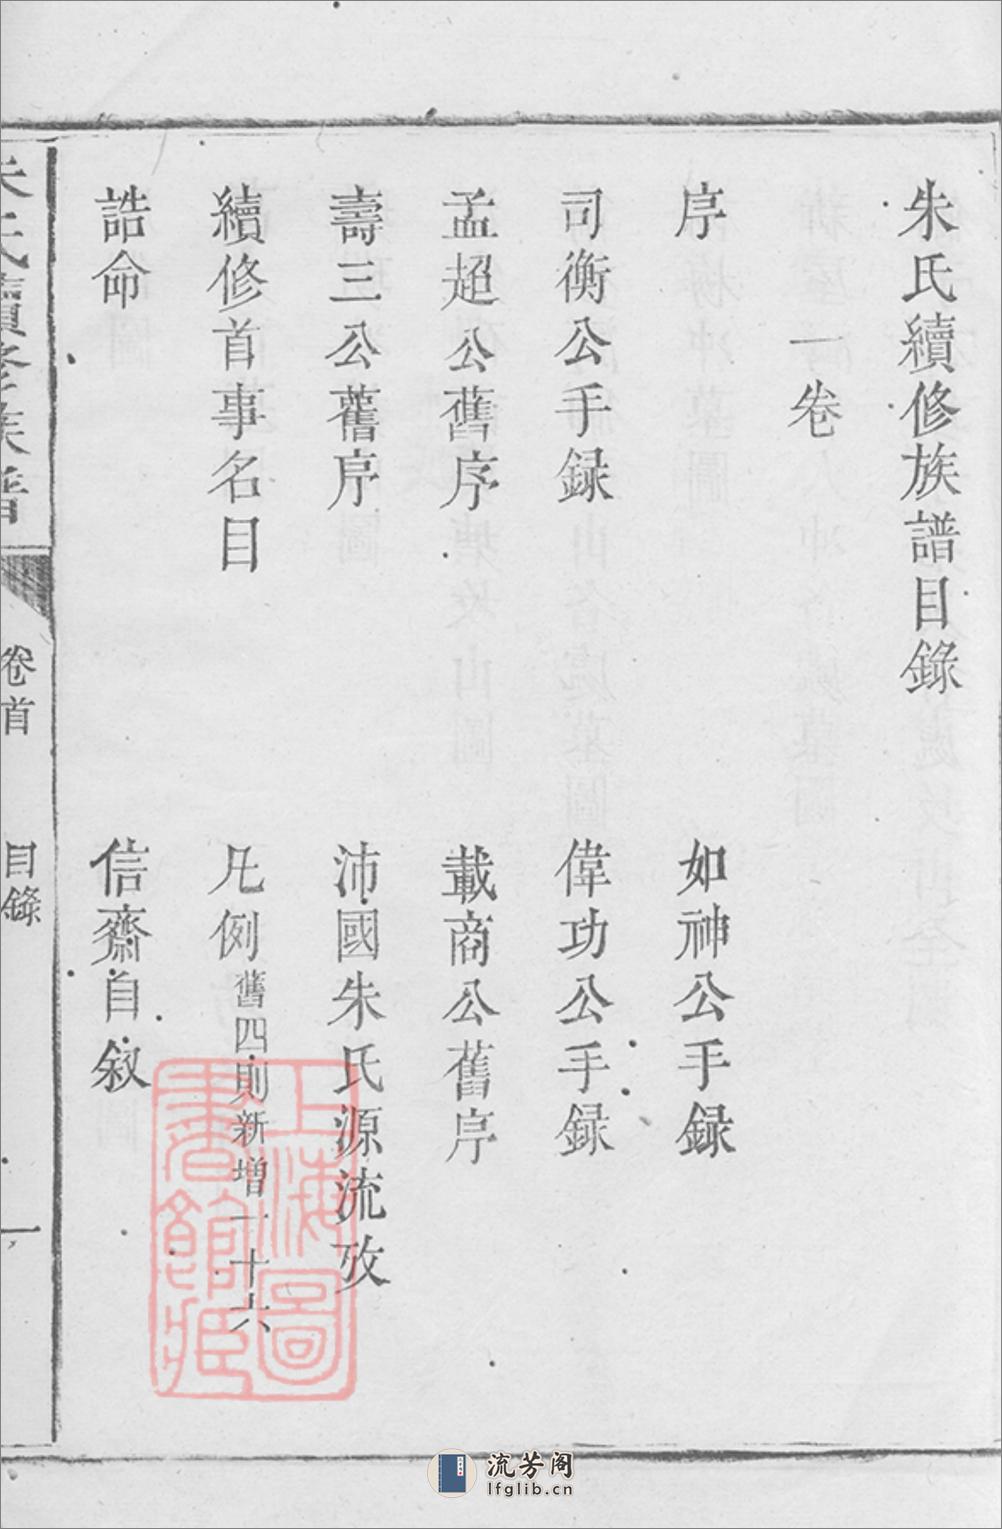 朱氏續修族譜目錄
一卷
序
如神公手録
司衡公手録
偉功公手録
孟超公舊序
載商公舊序
壽三公舊序
沛國朱氏源流攷
續修首事名目
凡例舊四則新增一十六
誥命
信齋自叙
朱氏續修族譜
卷首
目錄
一
上海圖書館藏
流芳阁
lfglib.cn